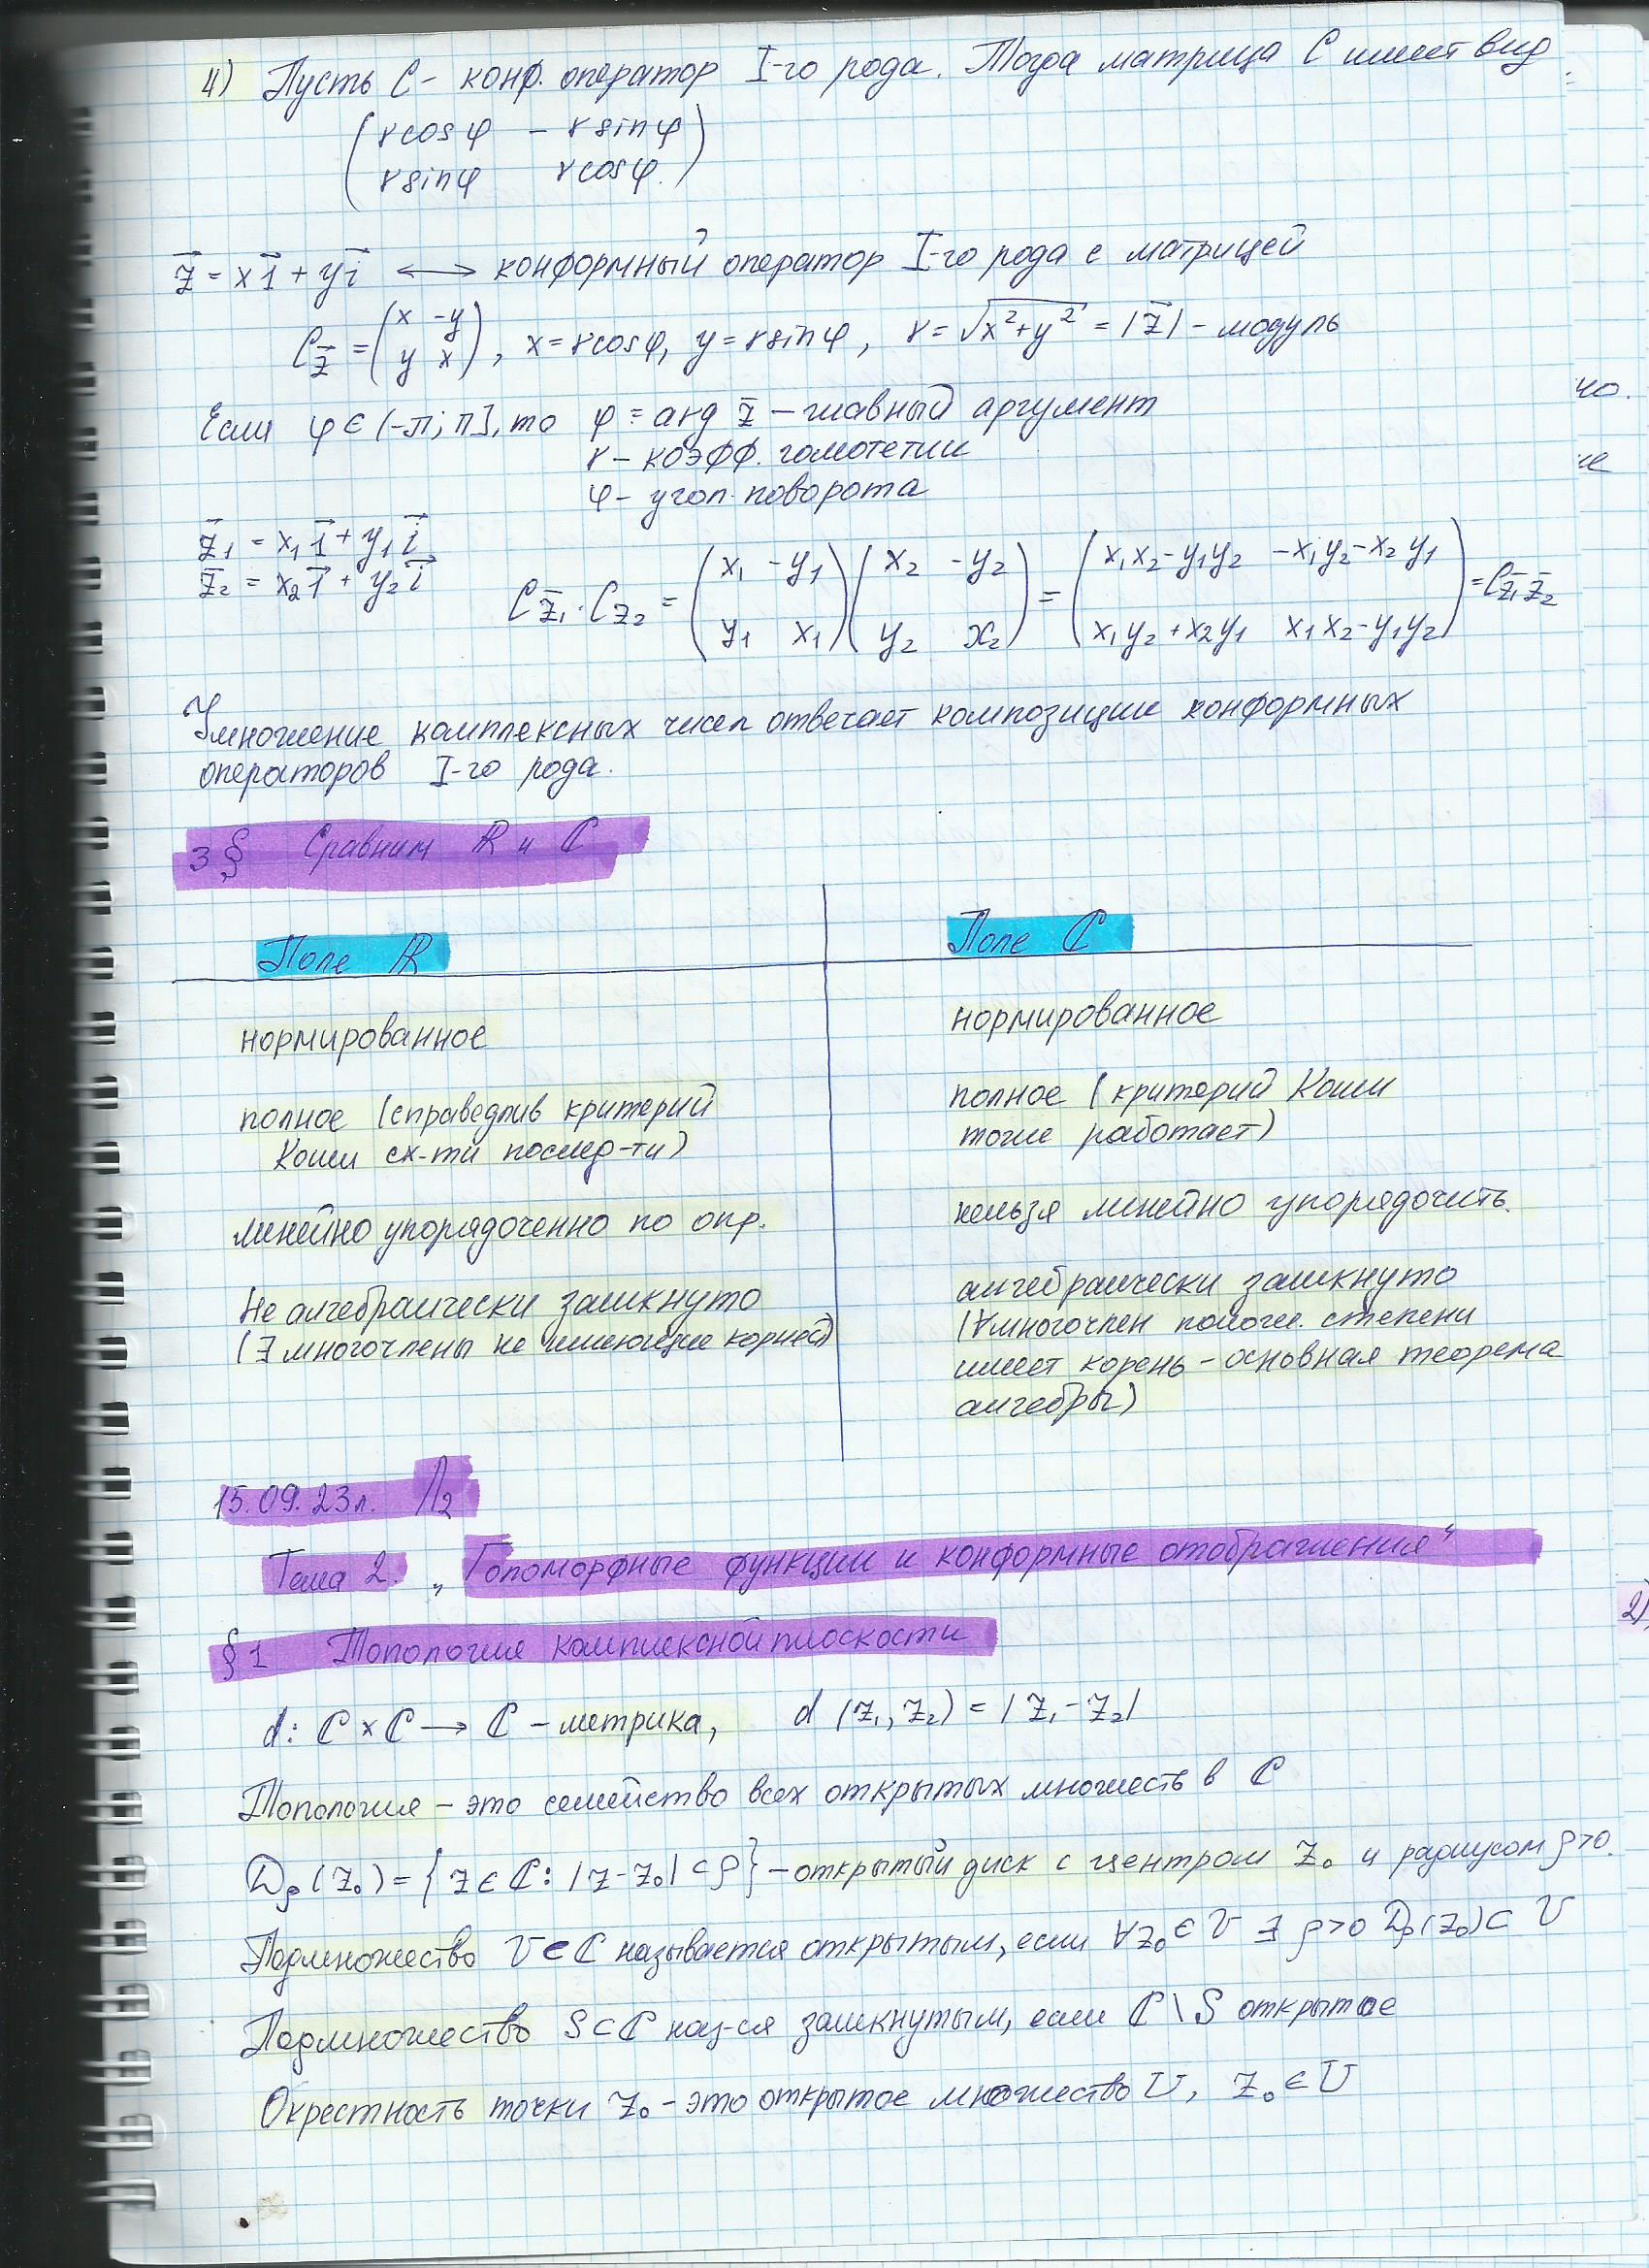 4) Пусть C - конф. оператор I-го рода. Тогда матрица C имеет вид
( r cos φ  - r sin φ )
( r sin φ  r cos φ. )
z⃗ = x1⃗ + yi⃗ ⟷ конформный оператор I-го рода с матрицей
C_z⃗ = (x -y; y x), x = r cos φ, y = r sin φ, r = √(x²+y²) = |z⃗| - модуль
Если φ ∈ (-π; π], то φ = arg z̄ - главный аргумент
r - коэфф. гомотетии
φ - угол поворота
z̄₁ = x₁1⃗ + y₁i⃗
z̄₂ = x₂1⃗ + y₂i⃗
C_z̄₁ · C_z₂ = (x₁ -y₁; y₁ x₁)(x₂ -y₂; y₂ x₂) = (x₁x₂-y₁y₂ -x₁y₂-x₂y₁; x₁y₂+x₂y₁ x₁x₂-y₁y₂) = C_z̄₁z̄₂
Умножение комплексных чисел отвечает композиции конформных
операторов I-го рода.
3 § Сравним ℝ и ℂ
Поле ℝ
нормированное
полное (справедлив критерий
Коши сх-ти послед-ти)
линейно упорядоченно по опр.
Не алгебраически замкнуто
(∃ многочлены не имеющие корней)
Поле ℂ
нормированное
полное (критерий Коши
тоже работает)
нельзя линейно упорядочить.
алгебраически замкнуто
(∀ многочлен полож. степени
имеет корень - основная теорема
алгебры)
15.09.23г. Л₂
Тема 2. „Голоморфные функции и конформные отображения“
§ 1 Топология комплексной плоскости
d: ℂ × ℂ → ℂ - метрика, d (z₁, z₂) = |z₁ - z₂|
Топология - это семейство всех открытых множеств в ℂ
D_ρ (z₀) = {z ∈ ℂ: |z - z₀| < ρ} - открытый диск с центром z₀ и радиусом ρ>0.
Подмножество U ⊂ ℂ называется открытым, если ∀z₀ ∈ U ∃ ρ>0 D_ρ(z₀) ⊂ U
Подмножество S ⊂ ℂ наз-ся замкнутым, если ℂ \ S открытое
Окрестность точки z₀ - это открытое множество U, z₀ ∈ U
но.
2)